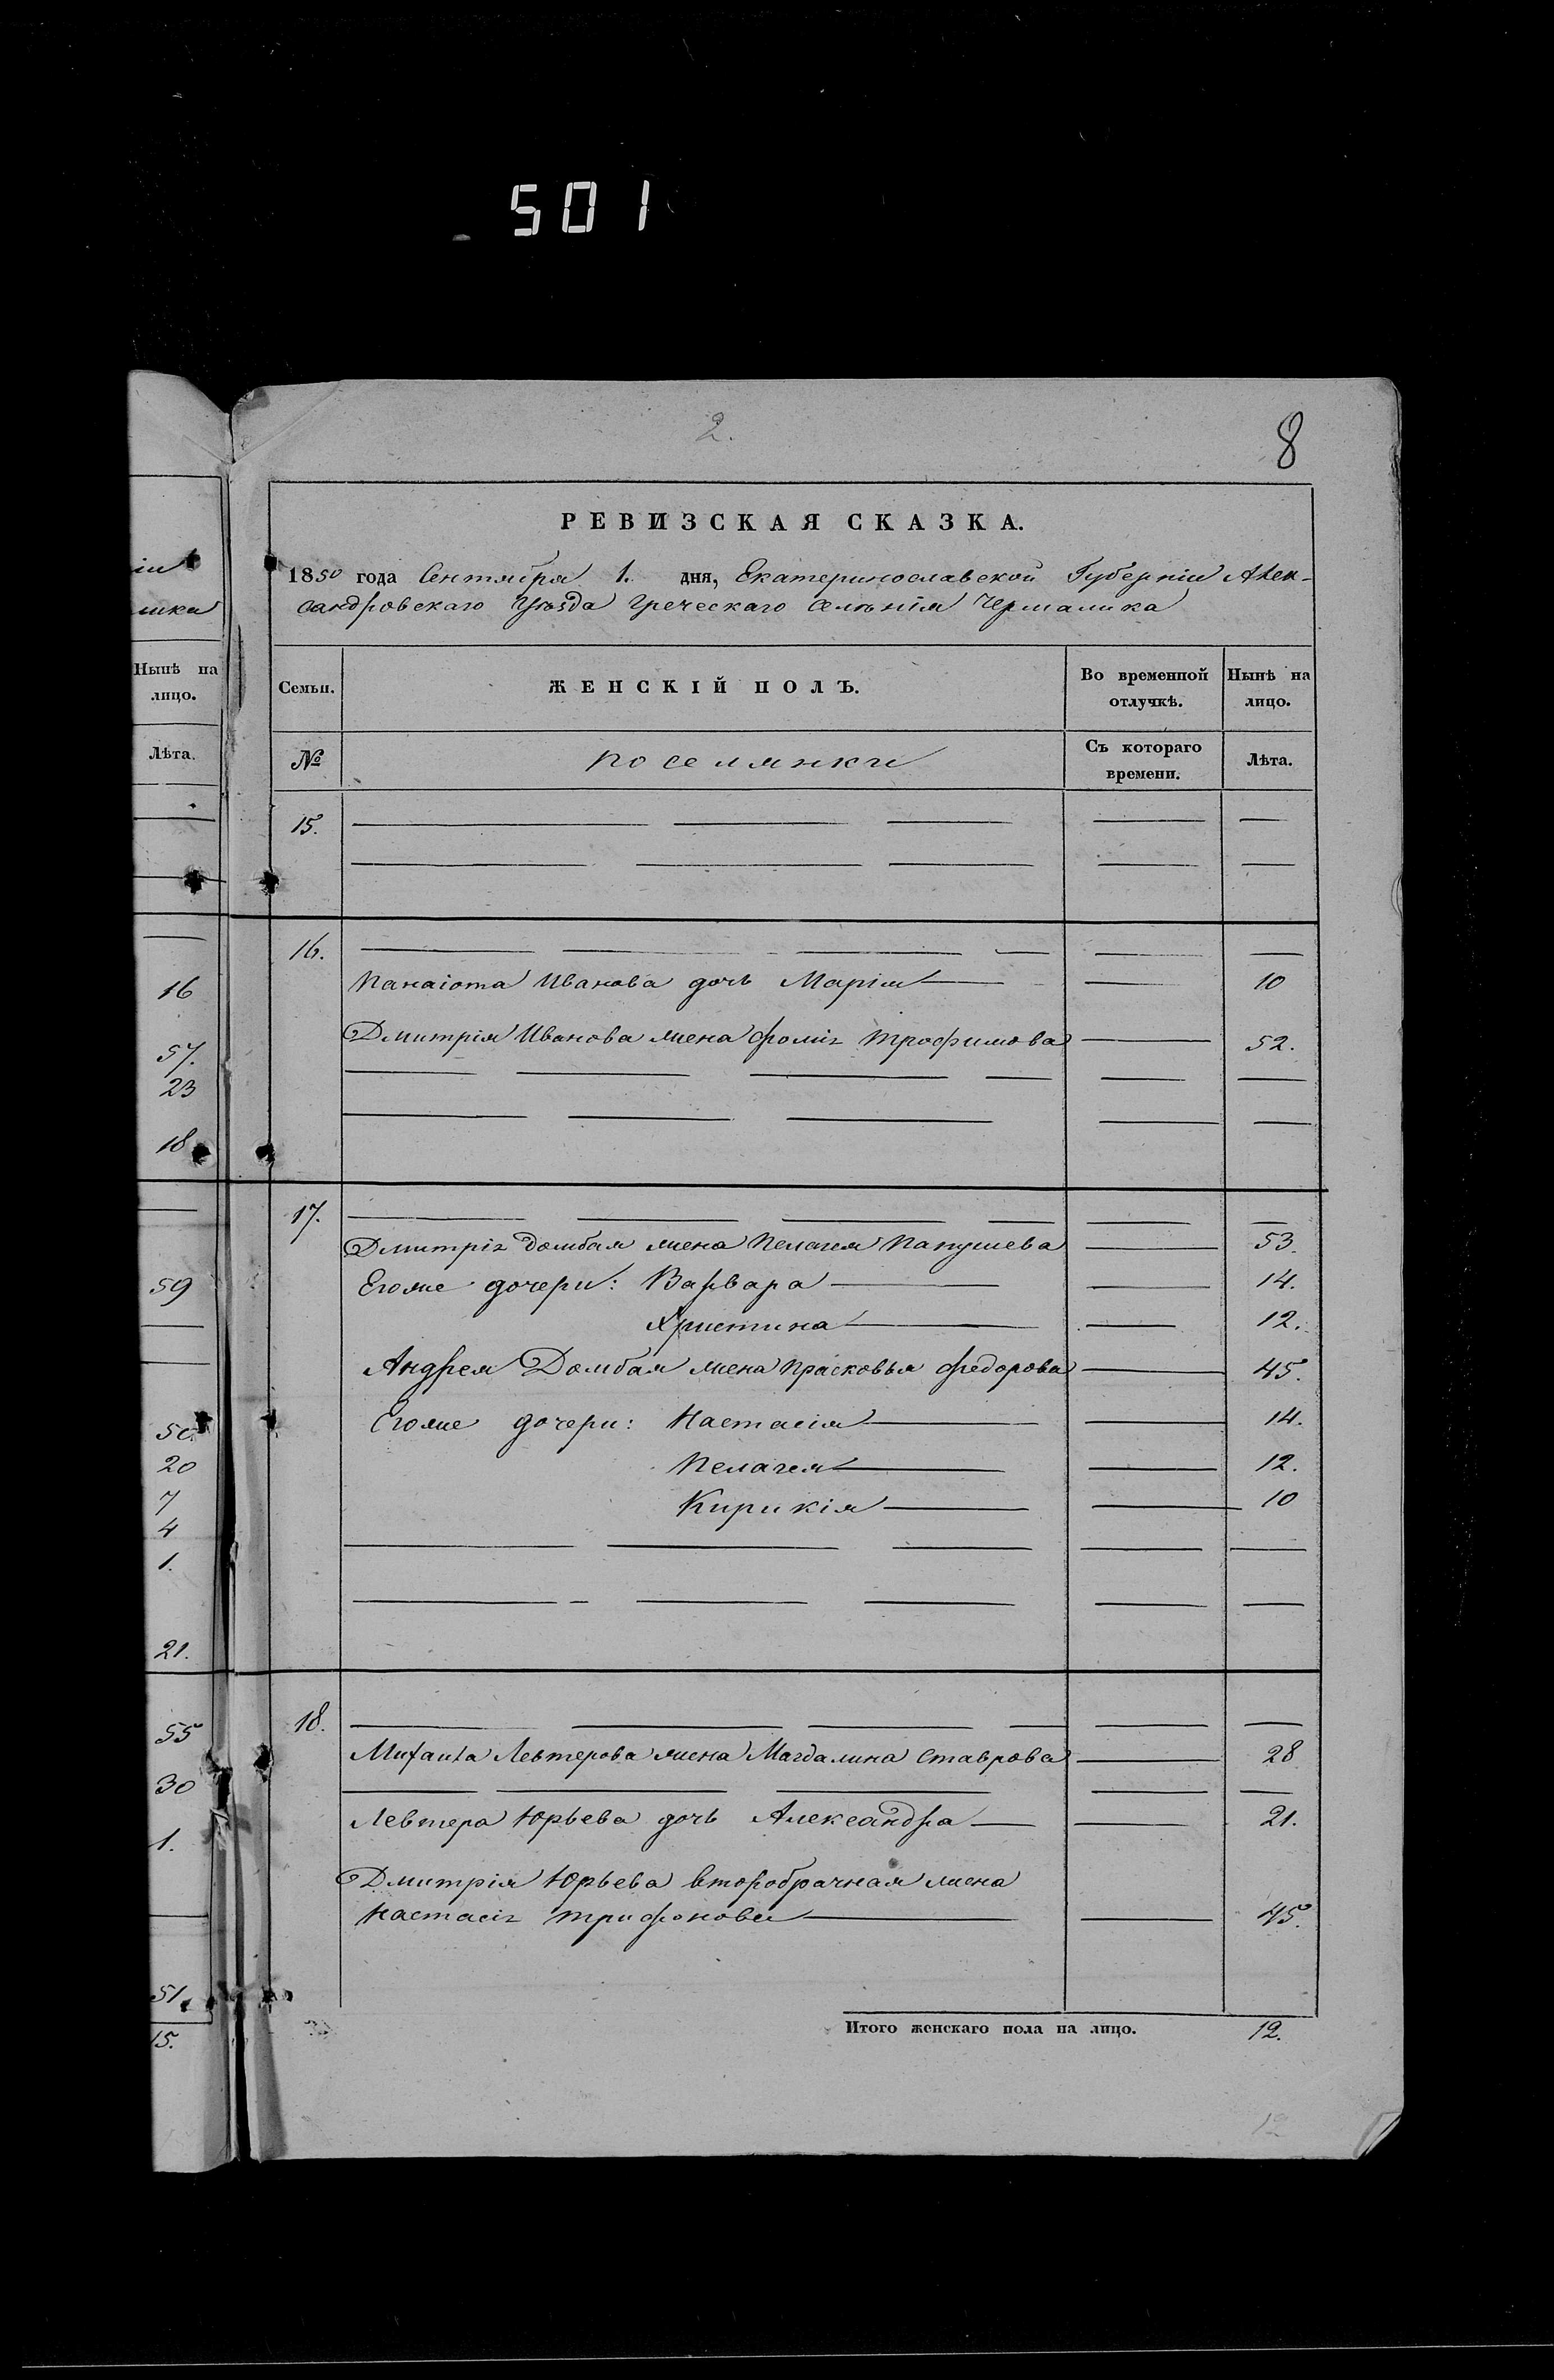 501
2.
8
РЕВИЗСКАЯ СКАЗКА.
1850 года Сентября 1. дня, Екатеринославской Губерніи Алек-
сандровскаго Уѣзда Греческаго Селѣнія Чермалика
Семьи.
ЖЕНСКІЙ ПОЛЪ.
Во временной отлучкѣ.
Нынѣ на лицо.
№
поселянки
Съ котораго времени.
Лѣта.
15.
16.
Панаіота Иванова дочь Марія 10
Дмитрія Иванова жена Трофимова 52.
17.
Дмитрія Домбая жена Пелагея Папушева 53.
Егоже дочери: Варвара 14.
Христина 12.
Андрея Домбая жена Прасковья Федорова 45.
Егоже дочери: Настасія 14.
Пелагея 12.
Кирикія 10
18.
Михаила Левтерова жена Магдалина Ставрова 28
Левтера Юрьева дочь Александра 21.
Дмитрія Юрьева второбрачная жена
Настасія Трифонова 45.
Итого женскаго пола на лицо. 12.
12
іи
лика
Нынѣ на
лицо.
Лѣта.
16
57.
23
18
59
50.
20
7
4
1.
21.
55
30
1.
51.
15.